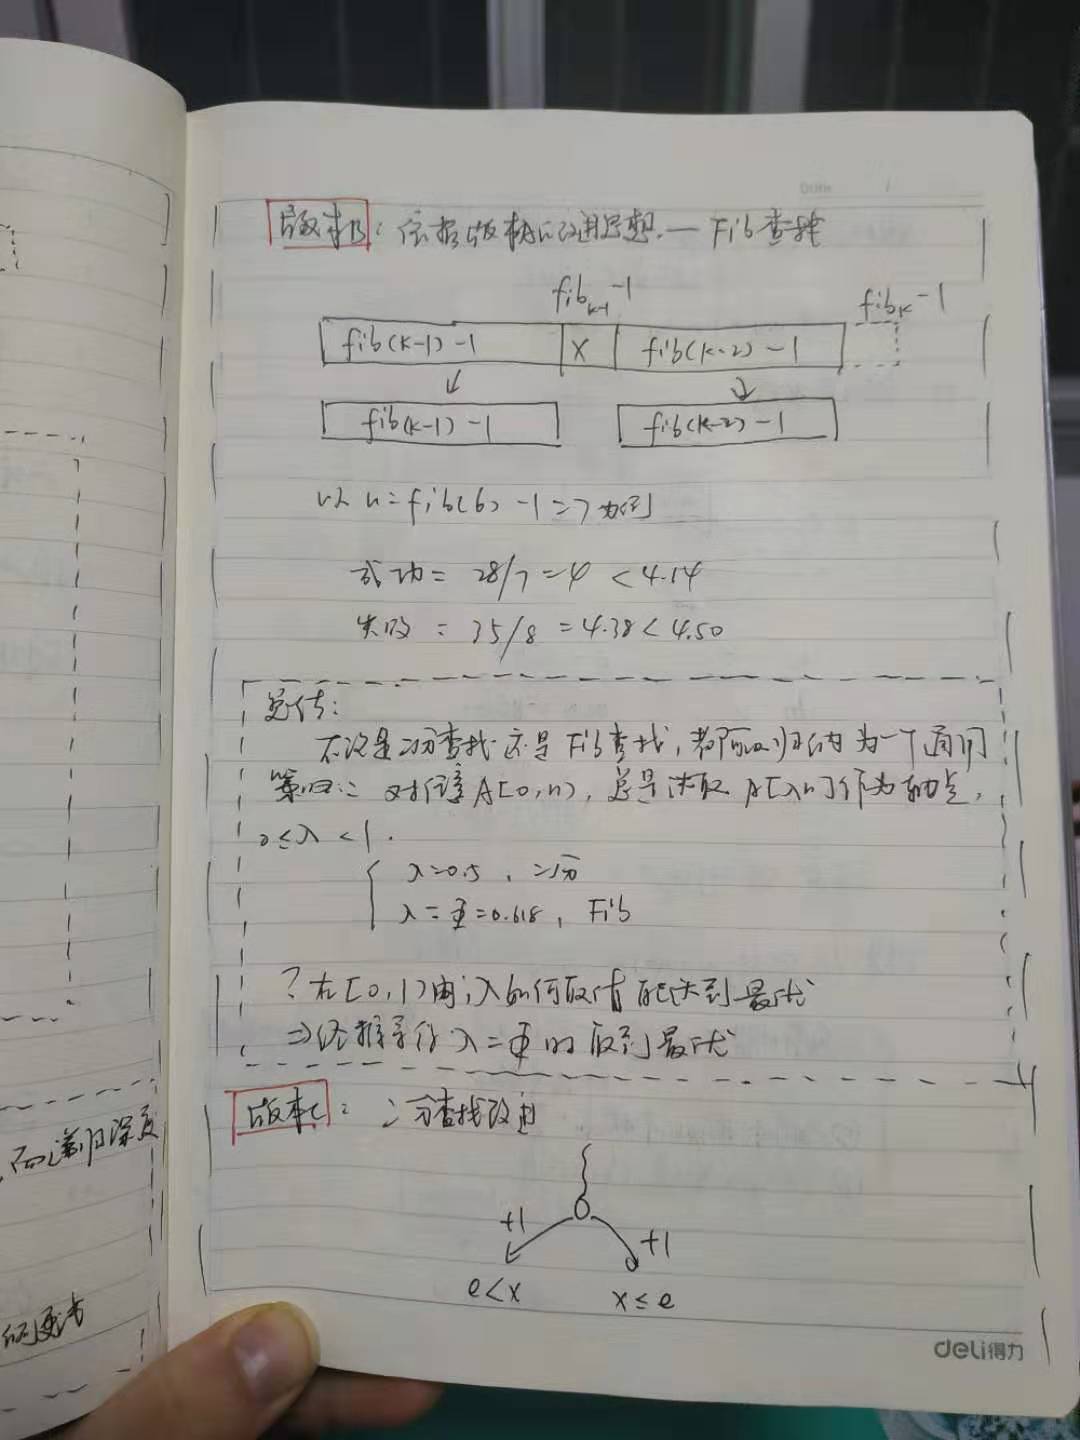 Date /
版本B：依据版本A的改进思想. — Fib查找
fib k-1 -1
fib k -1
fib(k-1)-1 X fib(k-2)-1
fib(k-1)-1 fib(k-2)-1
以 n=fib(6)-1=7为例
成功= 28/7=4 <4.14
失败 = 35/8 =4.38<4.50
总结：
不论是二分查找还是Fib查找，都可以归纳为一个通用
策略： 对任意A[0,n)，总是选取A[λn]作为轴点，
0≤λ<1.
λ=0.5，二分
λ=Φ=0.618，Fib
？在[0,1)内，λ如何取值能达到最优
⇒经推导得λ=Φ时取到最优
版本C：二分查找改进
+1
+1
e<x x≤e
而递归深度
deli得力